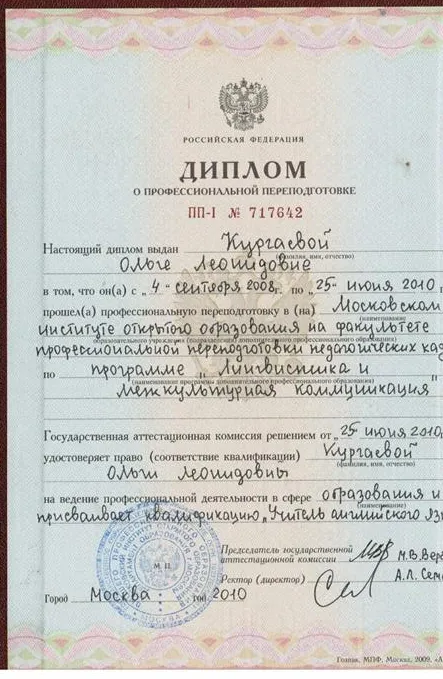 РОССИЙСКАЯ ФЕДЕРАЦИЯ
ДИПЛОМ
О ПРОФЕССИОНАЛЬНОЙ ПЕРЕПОДГОТОВКЕ
ПП-I № 717642
Настоящий диплом выдан Кургаевой
(фамилия, имя, отчество)
Ольге Леонидовне
в том, что он(а) с „4" сентября 2008г. по „25" июня 2010
прошел(а) профессиональную переподготовку в (на) Московском
(наименование)
институте открытого образования на факультете
образовательного учреждения (подразделения) дополнительного профессионального образования)
профессиональной переподготовки педагогических кад
по программе „Лингвистика и
(наименование программы дополнительного профессионального образования)
межкультурная коммуникация
Государственная аттестационная комиссия решением от „25" июня 2010
удостоверяет право (соответствие квалификации) Кургаевой
(фамилия, имя, отчество)
Ольги Леонидовны
на ведение профессиональной деятельности в сфере образования и
(наименование)
присваивает квалификацию „Учитель английского яз
Председатель государственной
аттестационной комиссии М.В. Вер
Ректор (директор) А.Л. Сем
М.П.
МОСКВА
Город Москва 2010
Гознак, МПФ, Москва, 2009, «А